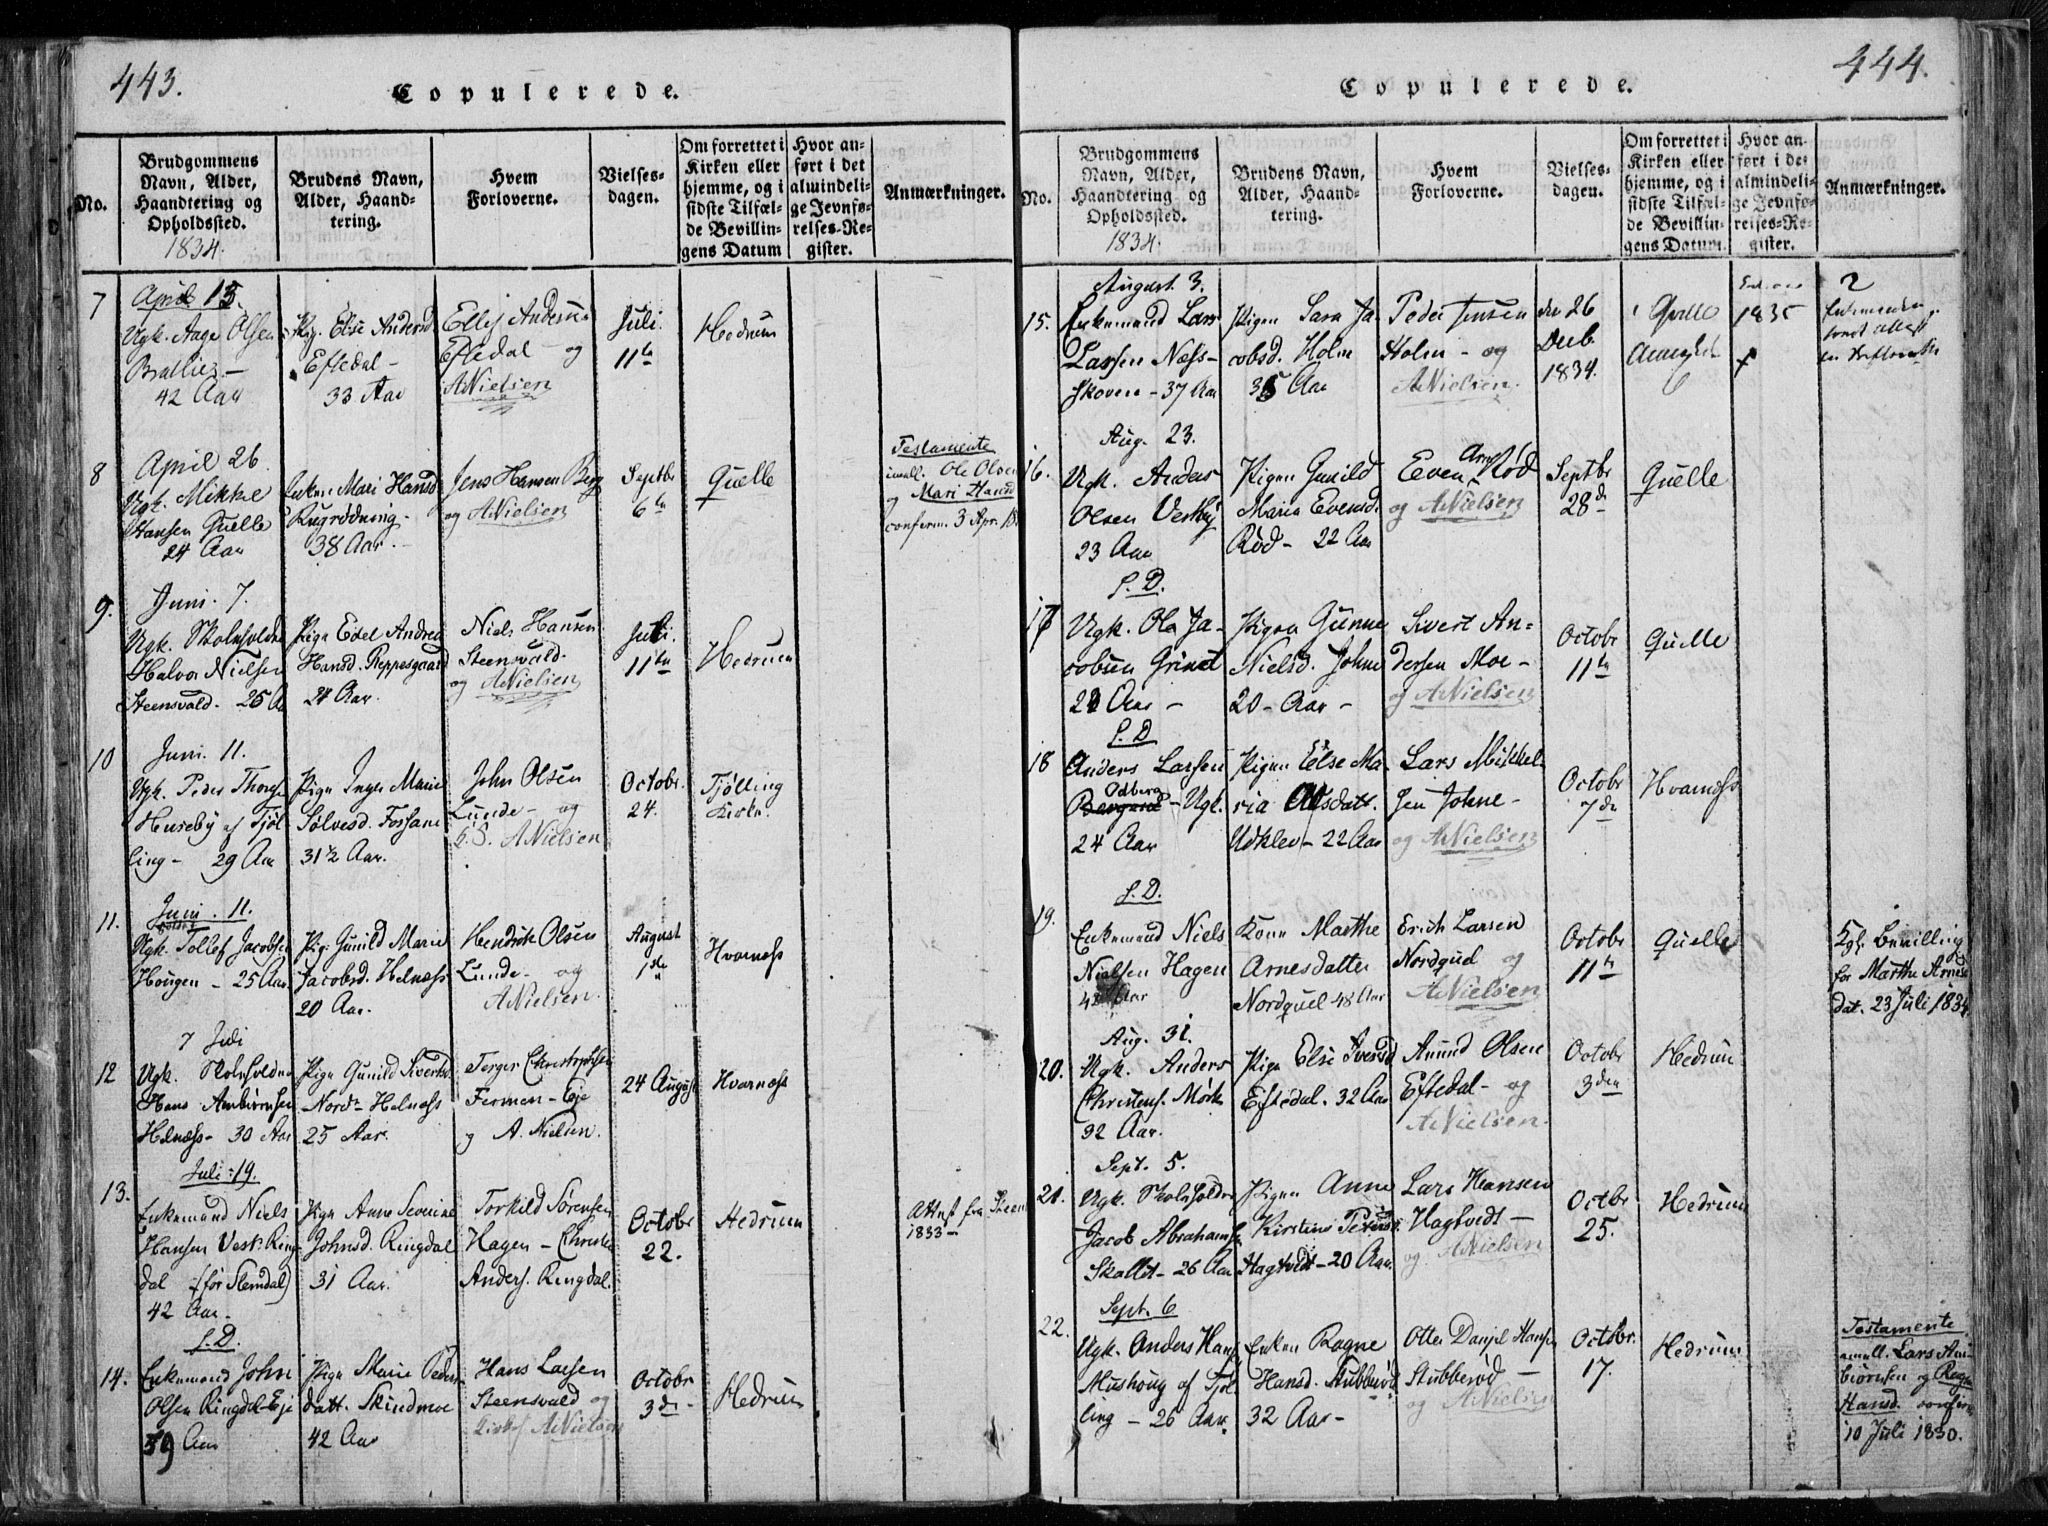 443.
Copulerede.
No.
Brudgommens
Navn, Alder,
Haandtering og
Opholdssted.
1834.
Brudens Navn,
Alder, Haand-
tering.
Hvem
Forloverne.
Vielses-
dagen.
Om forrettet i
Kirken eller
hjemme, og i
sidste Tilfæl-
de Bevillin-
gens Datum
Hvor an-
ført i det
almindeli-
ge Jevnfø-
relses-Re-
gister.
Anmærkninger.
7
April 13.
Ugk. Aage Olsen
42 Aar
Pig. Else Andersd
Eftedal -
33 Aar
Ellef Andersen
Eftedal - og
ANielsen
Juli.
11te
Hedrum
8
April 26.
Ugk. Mikkel
Hansen Quelle
24 Aar
Enken Mari Hansd
Rugrødning -
38 Aar. -
Jens Hansen Berg
og ANielsen
Septbr
6te
Quelle
Testamente
imell. Ole Olsen
og Mari Hansd
conferm. 3 Apr. 18
9.
Juni. 7.
Ugk. Skoleholder
Halvor Nielsen
Steensvald. 25 A
Pige Edel Andrea
Hansd. Reppesgaard
24 Aar.
Niels Hansen
Steensvald.
og ANielsen
Juli.
11te
Hedrum
10
Juni. 11.
Ugk. Peder Thor
Huseby af Tjøl
ling - 29 Aar
Pige Inger Marie
Sølvesd. Forsane
31½ Aar.
John Olsen
Lunde - og
ANielsen
Octobr.
24.
Tjølling
Kirke.
11.
Juni. 11.
Ugk. Tollef Jacobsen
Hougen - 25 Aar.
Pig Gunild Marie
Jacobsd. Helnæss
20 Aar.
Hendrik Olsen
Lunde - og
ANielsen.
August
1ste
Hvarness
12
7 Juli
Ugk. Skoleholder
Hans Ambiørnsen
Helnæss - 30 Aar
Pige Gunild Sivertsd
Nord-Helnæss
25 Aar.
Jørgen Christophersen
Fermen-Eje
og A. Nielsen.
24 August
Hvarness
13.
Juli 19.
Enkemand Niels
Hansen Vest-Ring-
dal (før Slemdal)
42 Aar -
Pige Anne Severine
Johnsd. Ringdal
31 Aar.
Torkild Sørensen
Hagen - Christen
Anders. Ringdal.
Octobr
22.
Hedrum
Attest fra Steen
1833 -
14.
S. D.
Enkemand John
Olsen Ringdal-Eje
59 Aar
Pige Marie Peders
datt. Skindmoe
42 Aar
Hans Larsen
Steensvald og
ANielsen
Octobr
3die
Hedrum
444.
Copulerede.
No.
Brudgommens
Navn, Alder,
Haandtering og
Opholdssted.
1834.
Brudens Navn,
Alder, Haand-
tering.
Hvem
Forloverne.
Vielses-
dagen.
Om forrettet i
Kirken eller
hjemme, og i
sidste Tilfæl-
de Bevillin-
gens Datum.
Hvor an-
ført i det
almindeli-
ge Jevnfø-
relses-Re-
gister.
Anmærkninger.
15.
August 3.
Enkemand Lars
Larsen Næss-
skoven - 37 Aar
Pigen Sara Ja-
cobsd. Holm
35 Aar
Peder Jensen
Holm - og
ANielsen.
den 26
Decb.
1834.
Qvelle
1835
2
16.
Aug. 23.
Ugk. Anders
Olsen Vestby
23 Aar
Pigen Gunild
Maria Evensd.
Rød - 22 Aar
Even Arnes Rød
og ANielsen
Septbr
28de
Quelle
17
S. D.
Ugk. Ole Ja-
cobsen Grinet
Aar -
Pigen Gunne
Nielsd. Johne
20 - Aar -
Sivert An-
dersen Moe -
og ANielsen
Octobr
11te
Quelle
18
S. D
Anders Larsen
Odberg - Ugk.
24 Aar
Pigen Else Ma-
ria Olsdatt.
Udklev - 22 Aar
Lars Mikkel-
sen Johne -
og ANielsen
Octobr
7de
Hvarness
19.
S. D.
Enkemand Niels
Nielsen Hagen
42 Aar
Kone Marthe
Arnesdatter
Nordquel 48 Aar
Erich Larsen
Nordqued og
ANielsen
Octobr
11te
Quelle
Kgl. Bevilling
for Marthe Arnes
dat. 23 Juli 1834
20.
Aug. 31.
Ugk. Anders
Christens. Mørk
32 Aar.
Pige Else Iversd
Eftedal. 32 Aar
Amund Olsen
Eftedal - og
ANielsen.
Octobr
3die
Hedrum
21.
Sept. 5.
Ugk. Skoleholder
Jacob Abrahams
Skallet - 26 Aar
Pigen Anne
Kirstine Peders
Hagtvedt - 20 Aar.
Lars Hansen
Hagtvedt -
og ANielsen
Octbr
25.
Hedrum
22.
Sept. 6
Ugk. Anders Hans
Mushoug af Tjøl
ling - 26 Aar.
Enken Ragne
Hansd. Stubberød
32 Aar -
Otter Danjel Hansen
Stubberød -
og ANielsen
Octbr.
17.
Hedrum
Testamente
imell. Lars Am-
biørnsen og Ragne
Hansd. conferm
10 Juli 1830.